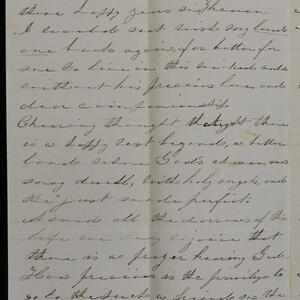 there happy years in Heaven
I would not wish my loved
one back again, for better for
me to live in this wicked world
without his precious love and
dear companionship
Cheering thought that there
is a happy rest beyond, a better
land where God's chosen ones
may dwell, with holy angels, and
the just made perfect
Amid all the sorrows of this
life we may rejoice that
there is a prayer hearing God
How precious is the privilege to
go to the such a friend in the